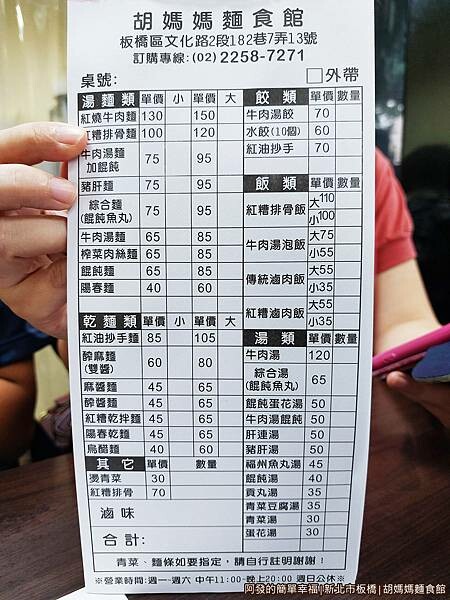 胡媽媽麵食館
板橋區文化路2段182巷7弄13號
訂購專線:(02) 2258-7271
桌號: □外帶
湯麵類 單價 小 單價 大
紅燒牛肉麵 130 150
紅糟排骨麵 100 120
牛肉湯麵
加餛飩 75 95
豬肝麵 75 95
綜合麵
(餛飩魚丸) 75 95
牛肉湯麵 65 85
榨菜肉絲麵 65 85
餛飩麵 65 85
陽春麵 40 60
乾麵類 單價 小 單價 大
紅油抄手麵 85 105
醉麻麵
(雙醬) 60 80
麻醬麵 45 65
醉醬麵 45 65
紅糟乾拌麵 45 65
陽春乾麵 45 65
烏醋麵 40 60
其它 單價 數量
燙青菜 30
紅糟排骨 70
滷味
合計:
餃類 單價 數量
牛肉湯餃 70
水餃(10個) 60
紅油抄手 70
飯類 單價 數量
紅糟排骨飯 大110
小100
牛肉湯泡飯 大75
小55
傳統滷肉飯 大55
小35
紅糟滷肉飯 大55
小35
湯類 單價 數量
牛肉湯 120
綜合湯
(餛飩魚丸) 65
餛飩蛋花湯 50
牛肉湯餛飩 50
肝連湯 50
豬肝湯 50
福州魚丸湯 45
餛飩湯 40
貢丸湯 35
青菜豆腐湯 35
青菜湯 30
蛋花湯 30
青菜、麵條如要指定，請自行註明謝謝！
※營業時間:週一~週六 中午11:00~晚上20:00 週日公休※
阿發的簡單幸福|新北市板橋|胡媽媽麵食館